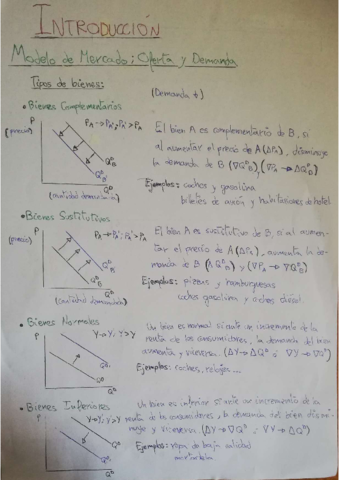 INTRODUCCIÓN
Modelo de Mercado: Oferta y Demanda
Tipos de bienes:
(Demanda
• Bienes Complementarios
P (precio)
PA → PA'; PA' > PA
QD (cantidad demandada)
El bien A es complementario de B, si
al aumentar el precio de A (ΔPA), disminuye
la demanda de B
Ejemplos: coches y gasolina
billetes de avión y habitaciones de hotel
• Bienes Sustitutivos
P (precio)
PA → PA'; PA' > PA
QD (cantidad demandada)
El bien A es sustitutivo de B, si al aumen-
tar el precio de A (ΔPA), aumenta la de-
manda de B
Ejemplos: pizzas y hamburguesas
coches gasolina y coches diésel.
• Bienes Normales
P
Y → Y'; Y' > Y
QD
Un bien es normal si ante un incremento de la
renta de los consumidores, la demanda del bien
aumenta y viceversa.
Ejemplos: coches, relojes...
• Bienes Inferiores
P
Y → Y'; Y' > Y
QD
Un bien es inferior si ante un incremento de la
renta de los consumidores, la demanda del bien dismi-
nuye y viceversa.
Ejemplos: ropa de baja calidad